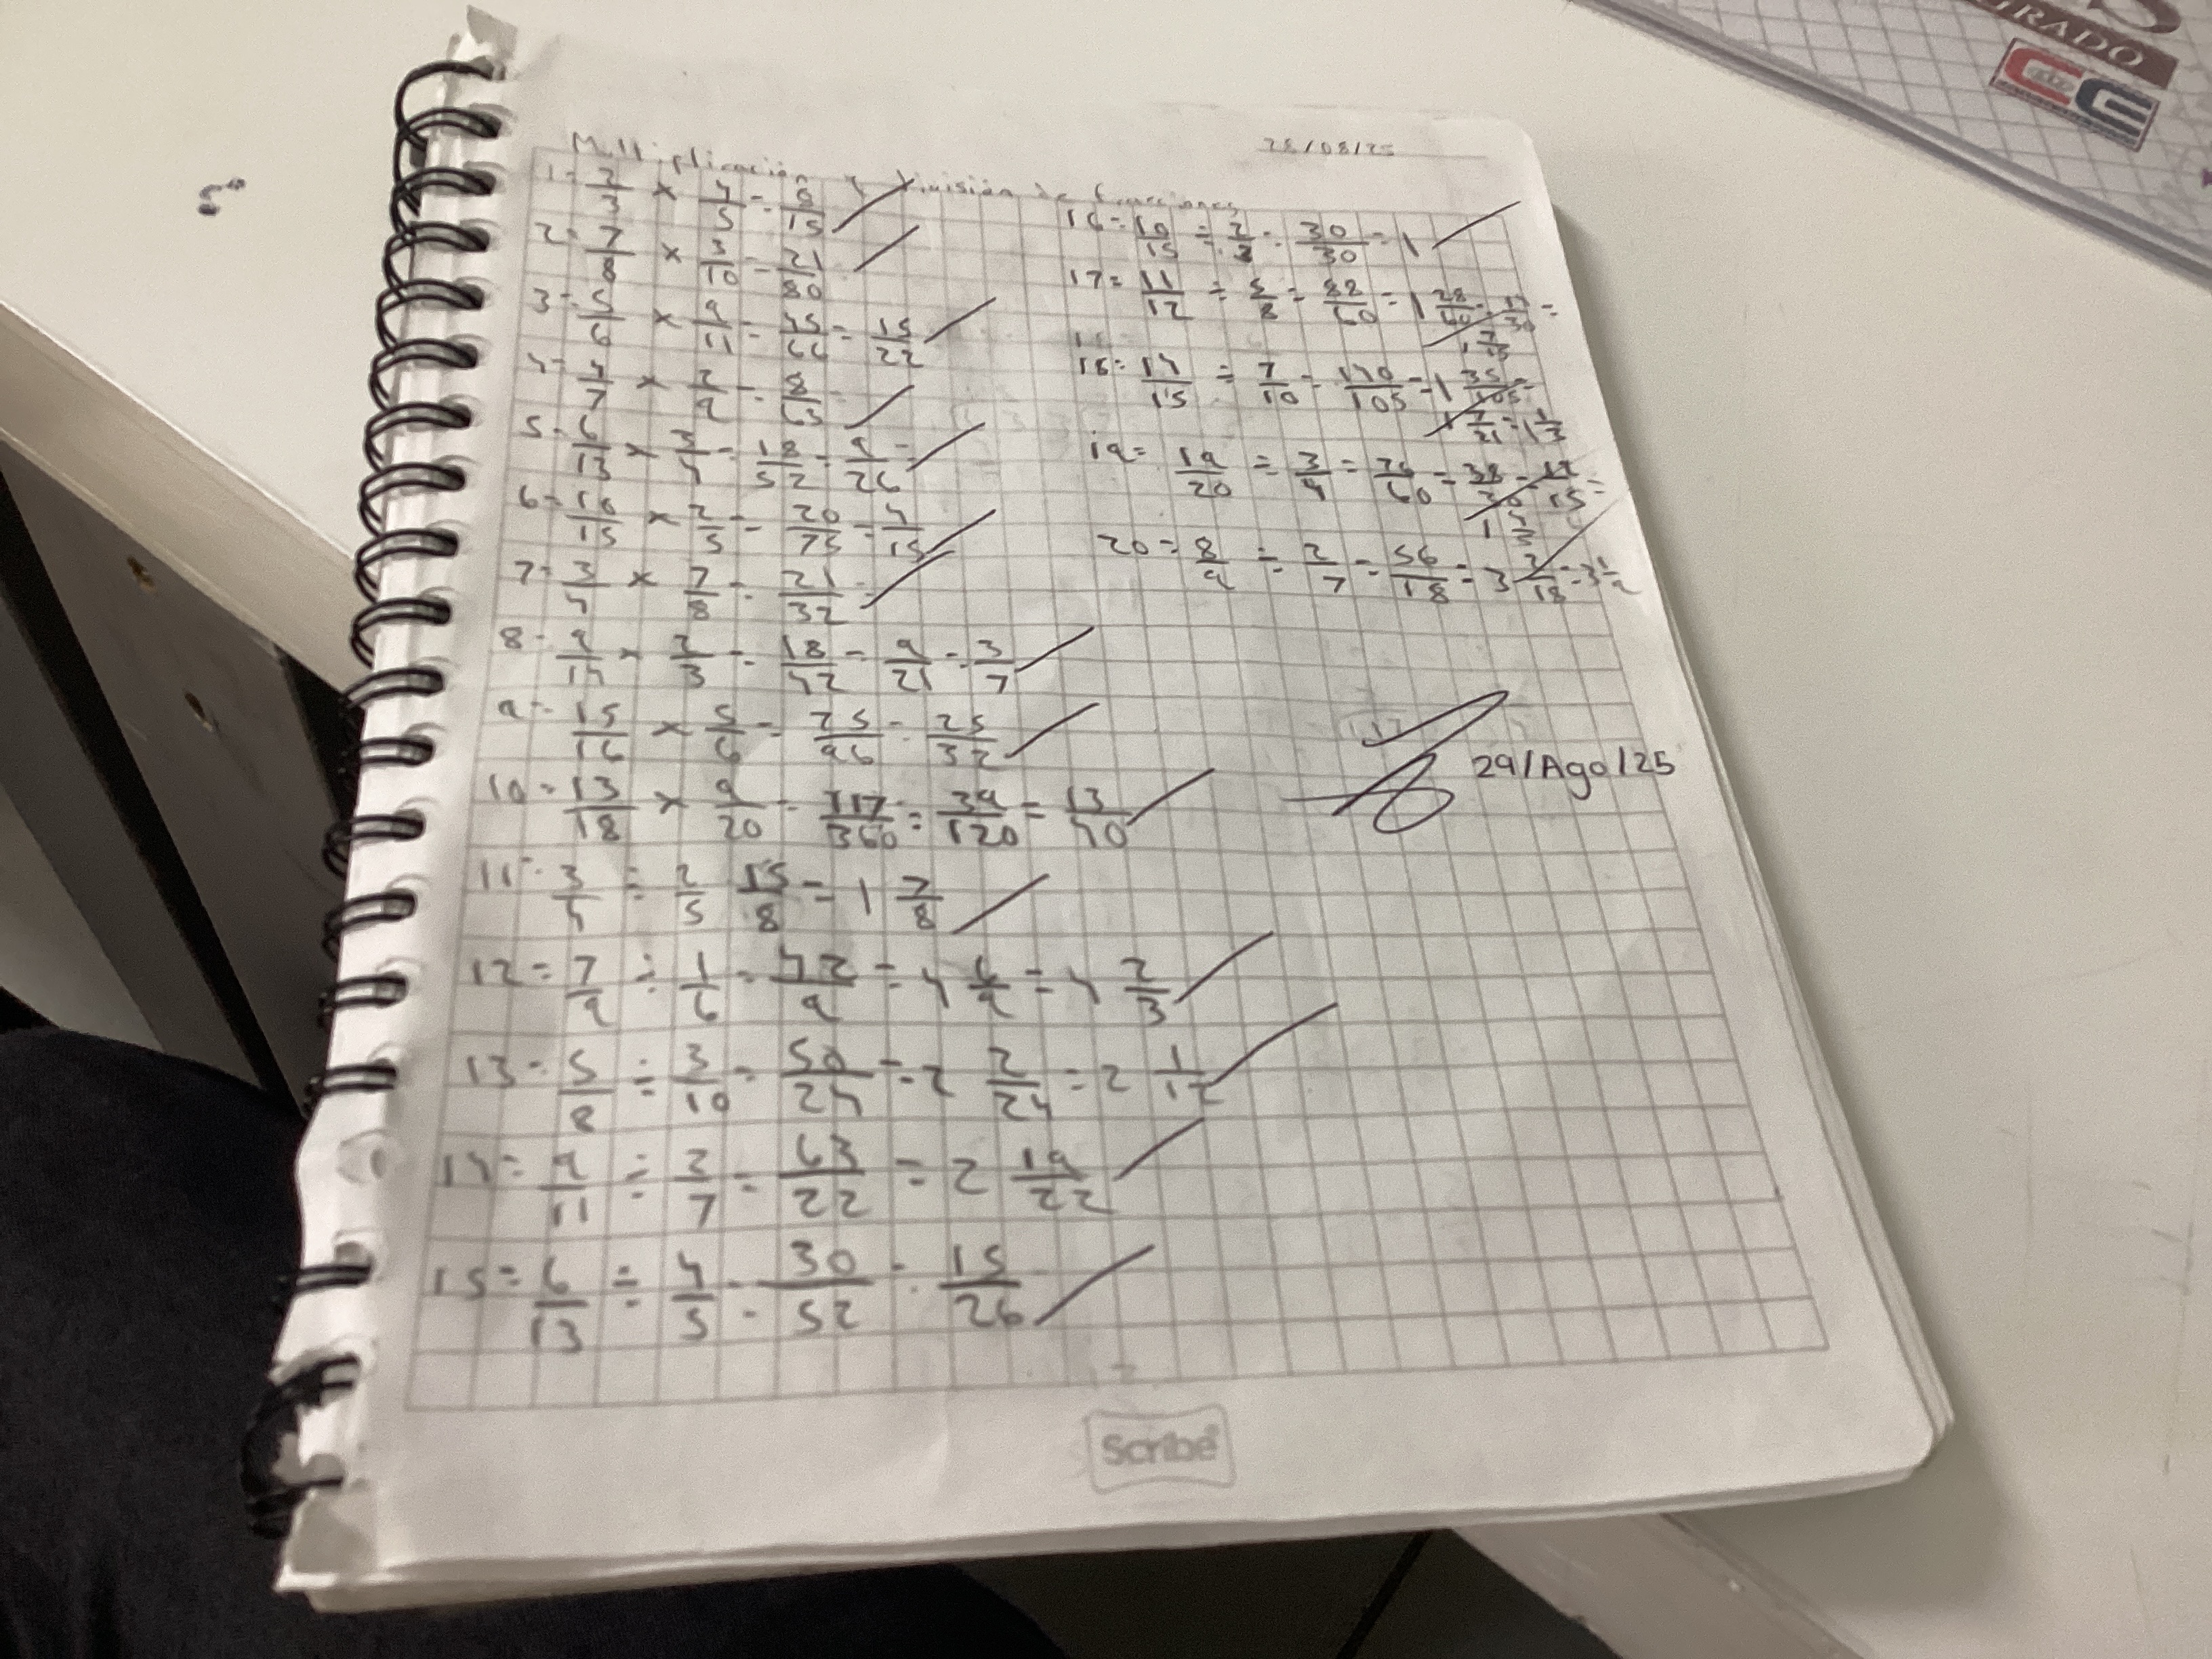 Multiplicación y División de fracciones 28/08/25
1= 2/3 × 4/5 = 8/15
2= 7/8 × 3/10 = 21/80
3= 5/6 × 9/11 = 45/66 = 15/22
4= 4/7 × 2/9 = 8/63
5= 6/13 × 3/4 = 18/52 = 9/26 =
6= 10/15 × 2/5 = 20/75 = 4/15
7= 3/4 × 7/8 = 21/32
8= 9/14 × 2/3 = 18/42 = 9/21 = 3/7
9= 15/16 × 5/6 = 75/96 = 25/32
10= 13/18 × 9/20 = 117/360 = 39/120 = 13/40
11= 3/4 ÷ 2/5 15/8 = 1 7/8
12= 7/9 ÷ 1/6 = 42/9 = 4 6/9 = 4 2/3
13= 5/8 ÷ 3/10 = 50/24 = 2 2/24 = 2 1/12
14= 9/11 ÷ 2/7 = 63/22 = 2 19/22
15= 6/13 ÷ 4/5 = 30/52 = 15/26
16= 10/15 ÷ 2/3 = 30/30 = 1
17= 11/12 ÷ 5/8 = 88/60 = 1 28/60 =
1 7/15
18= 14/15 ÷ 7/10 = 140/105 = 1 35/105 =
1 7/21 = 1 1/3
19= 19/20 ÷ 3/4 = 76/60 = 38/30 = 19/15 =
20= 8/9 ÷ 2/7 = 56/18 = 3 2/18 = 3 1/9
29/Ago/25
scribe
GRADO